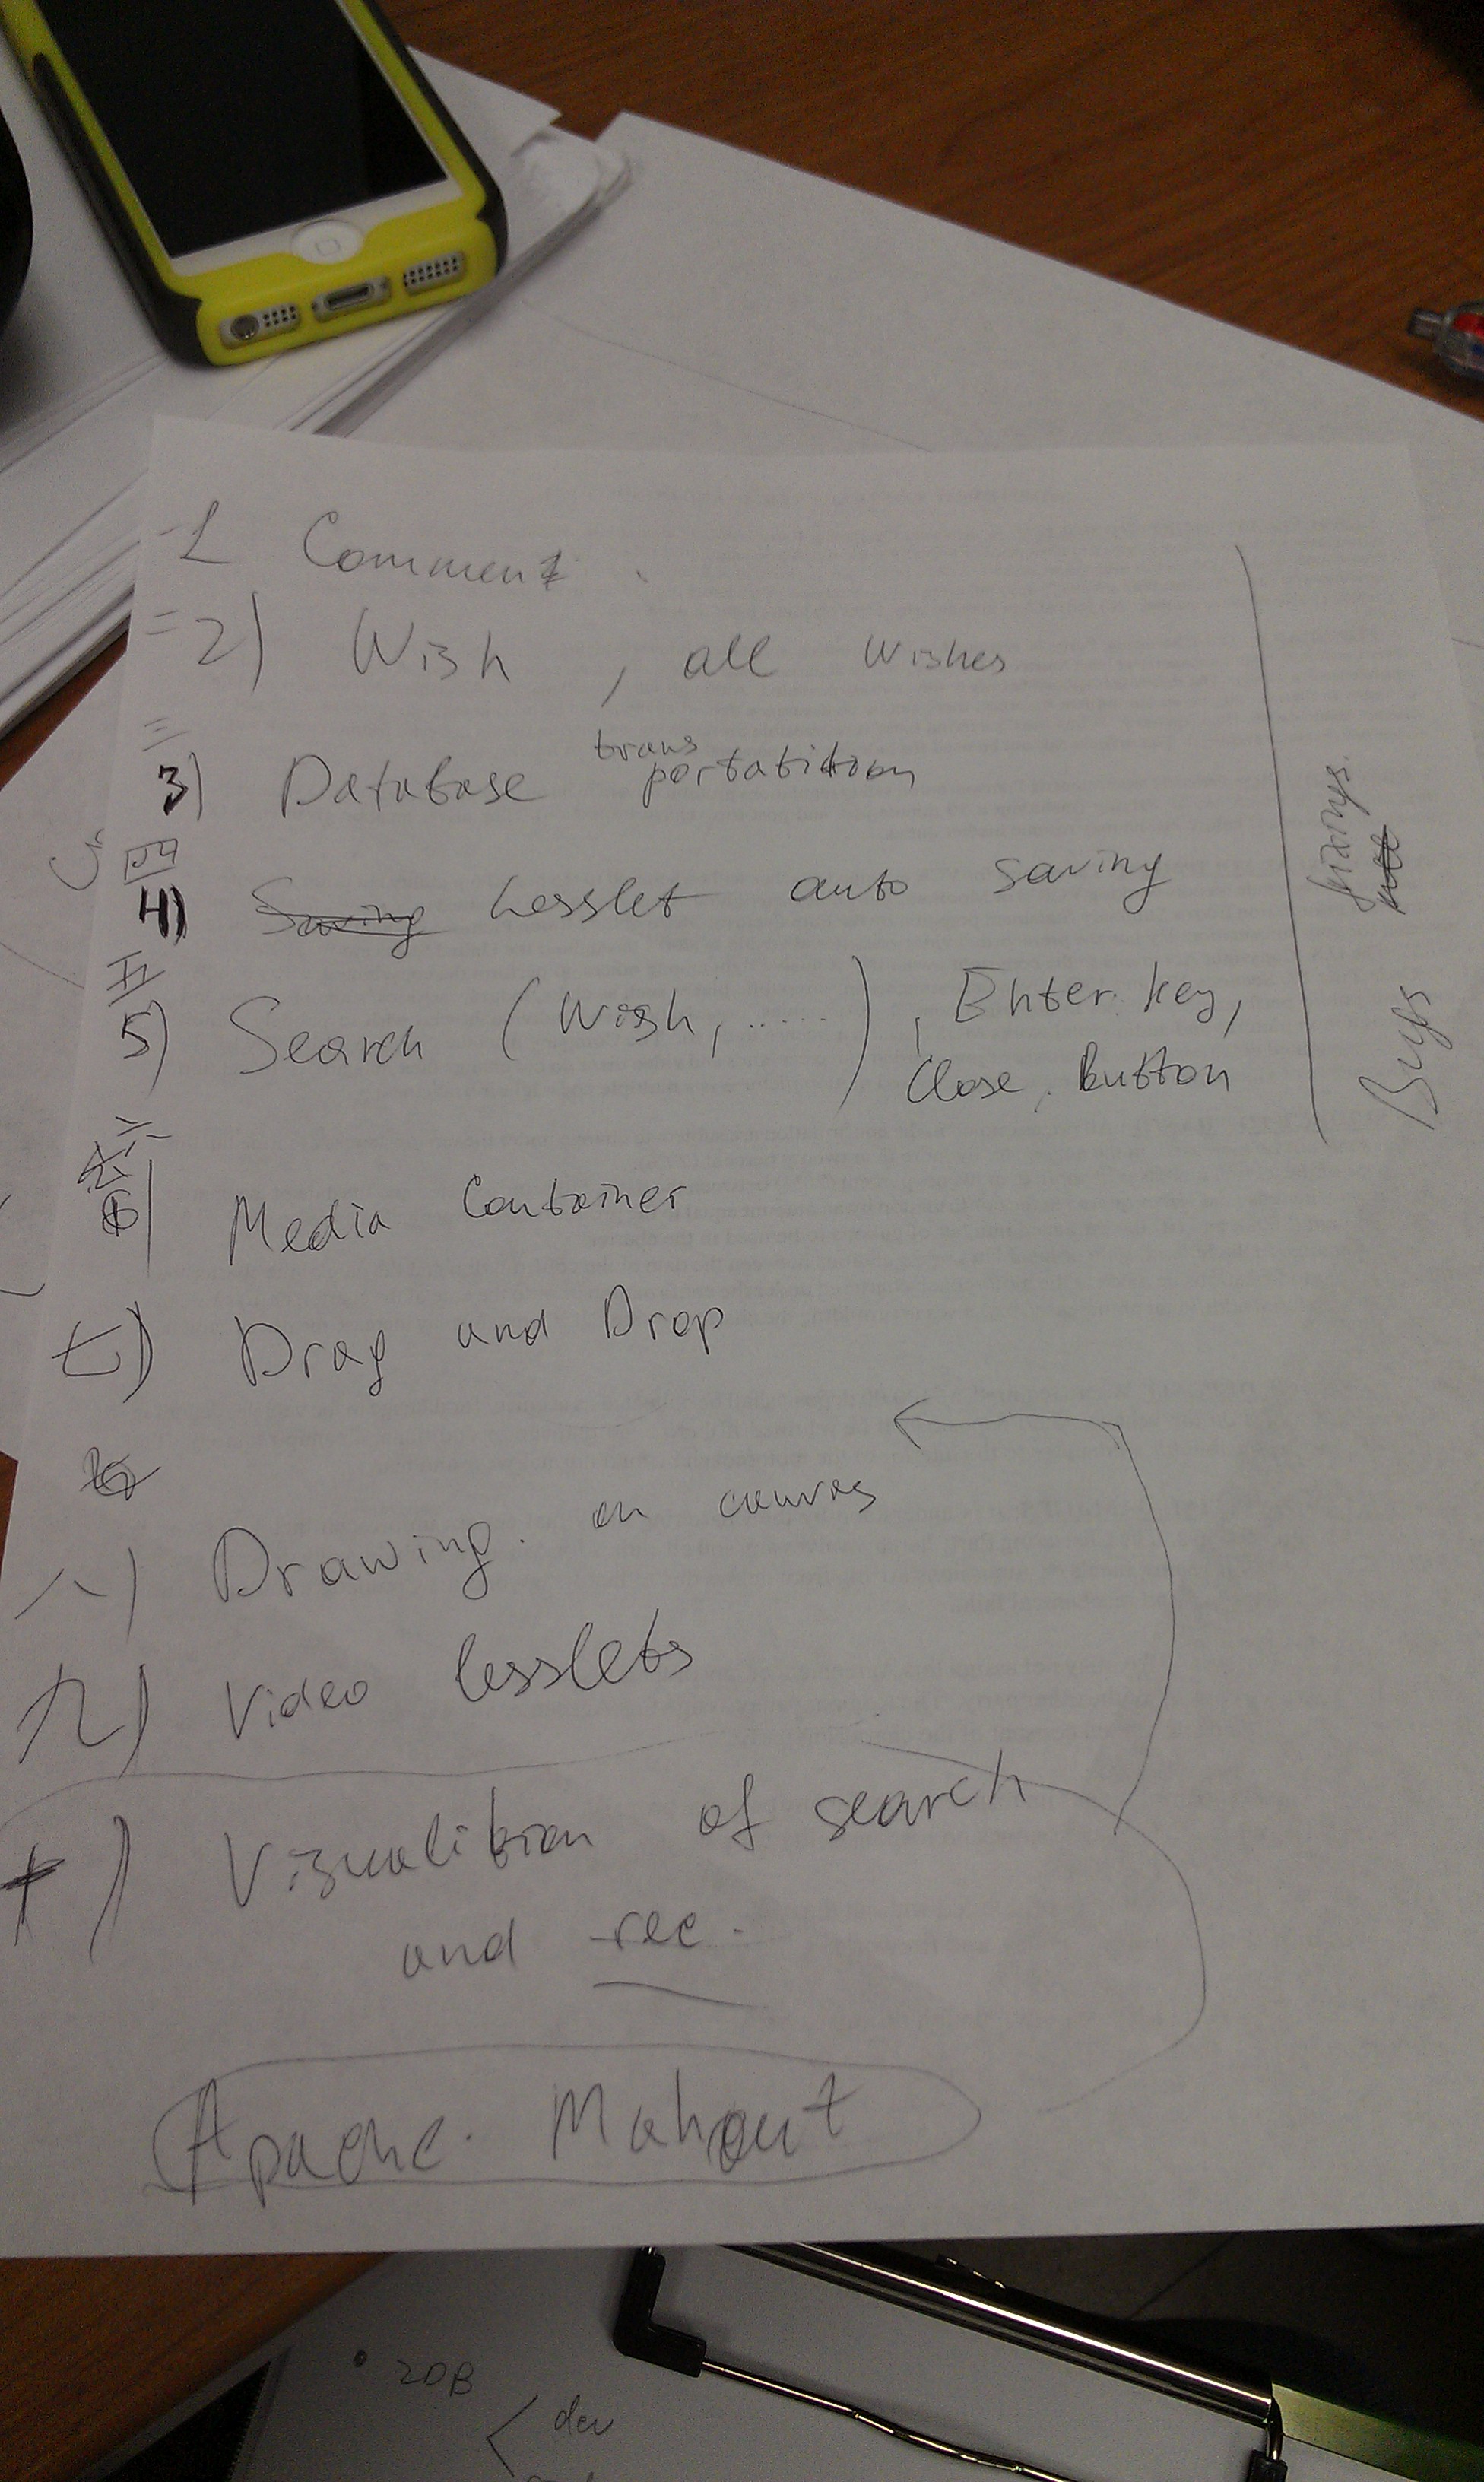 一 1 Comment.
二 2) Wish, all wishes
三
3) Database transportatition
四
4) Saving Lesslet auto saving
五
5) Search (Wish, .....), Enter key,
Close button
六
6) Media Container
七) Drag and Drop
八) Drawing. on canvas
九) Video lesslets
十) Vizualition of search
and rec.
Apache. Mahout
Bugs fixings.
• 2DB
dev